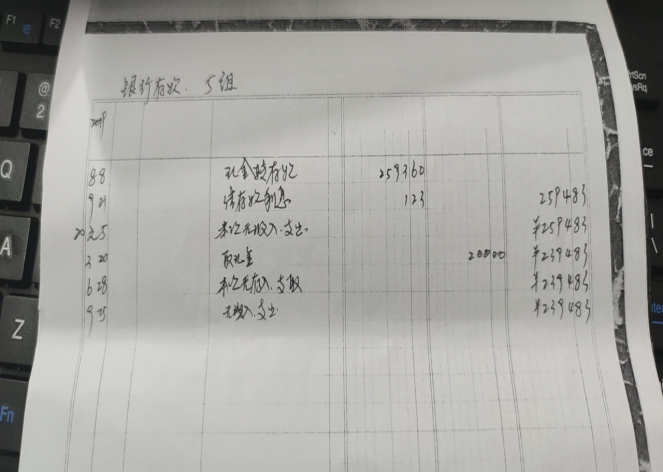 银行存款. 5组
2019
8 8 现金转存款 259360
9 21 结存款利息 123 259483
20 元 5 本次无收入.支出. ¥259483
3 20 取现金 20000 ¥239483
6 28 本次无存入.支取 ¥239483
9 25 无收入.支出. ¥239483
F1
F2
e
@
2
Q
A
Z
Fn
ce